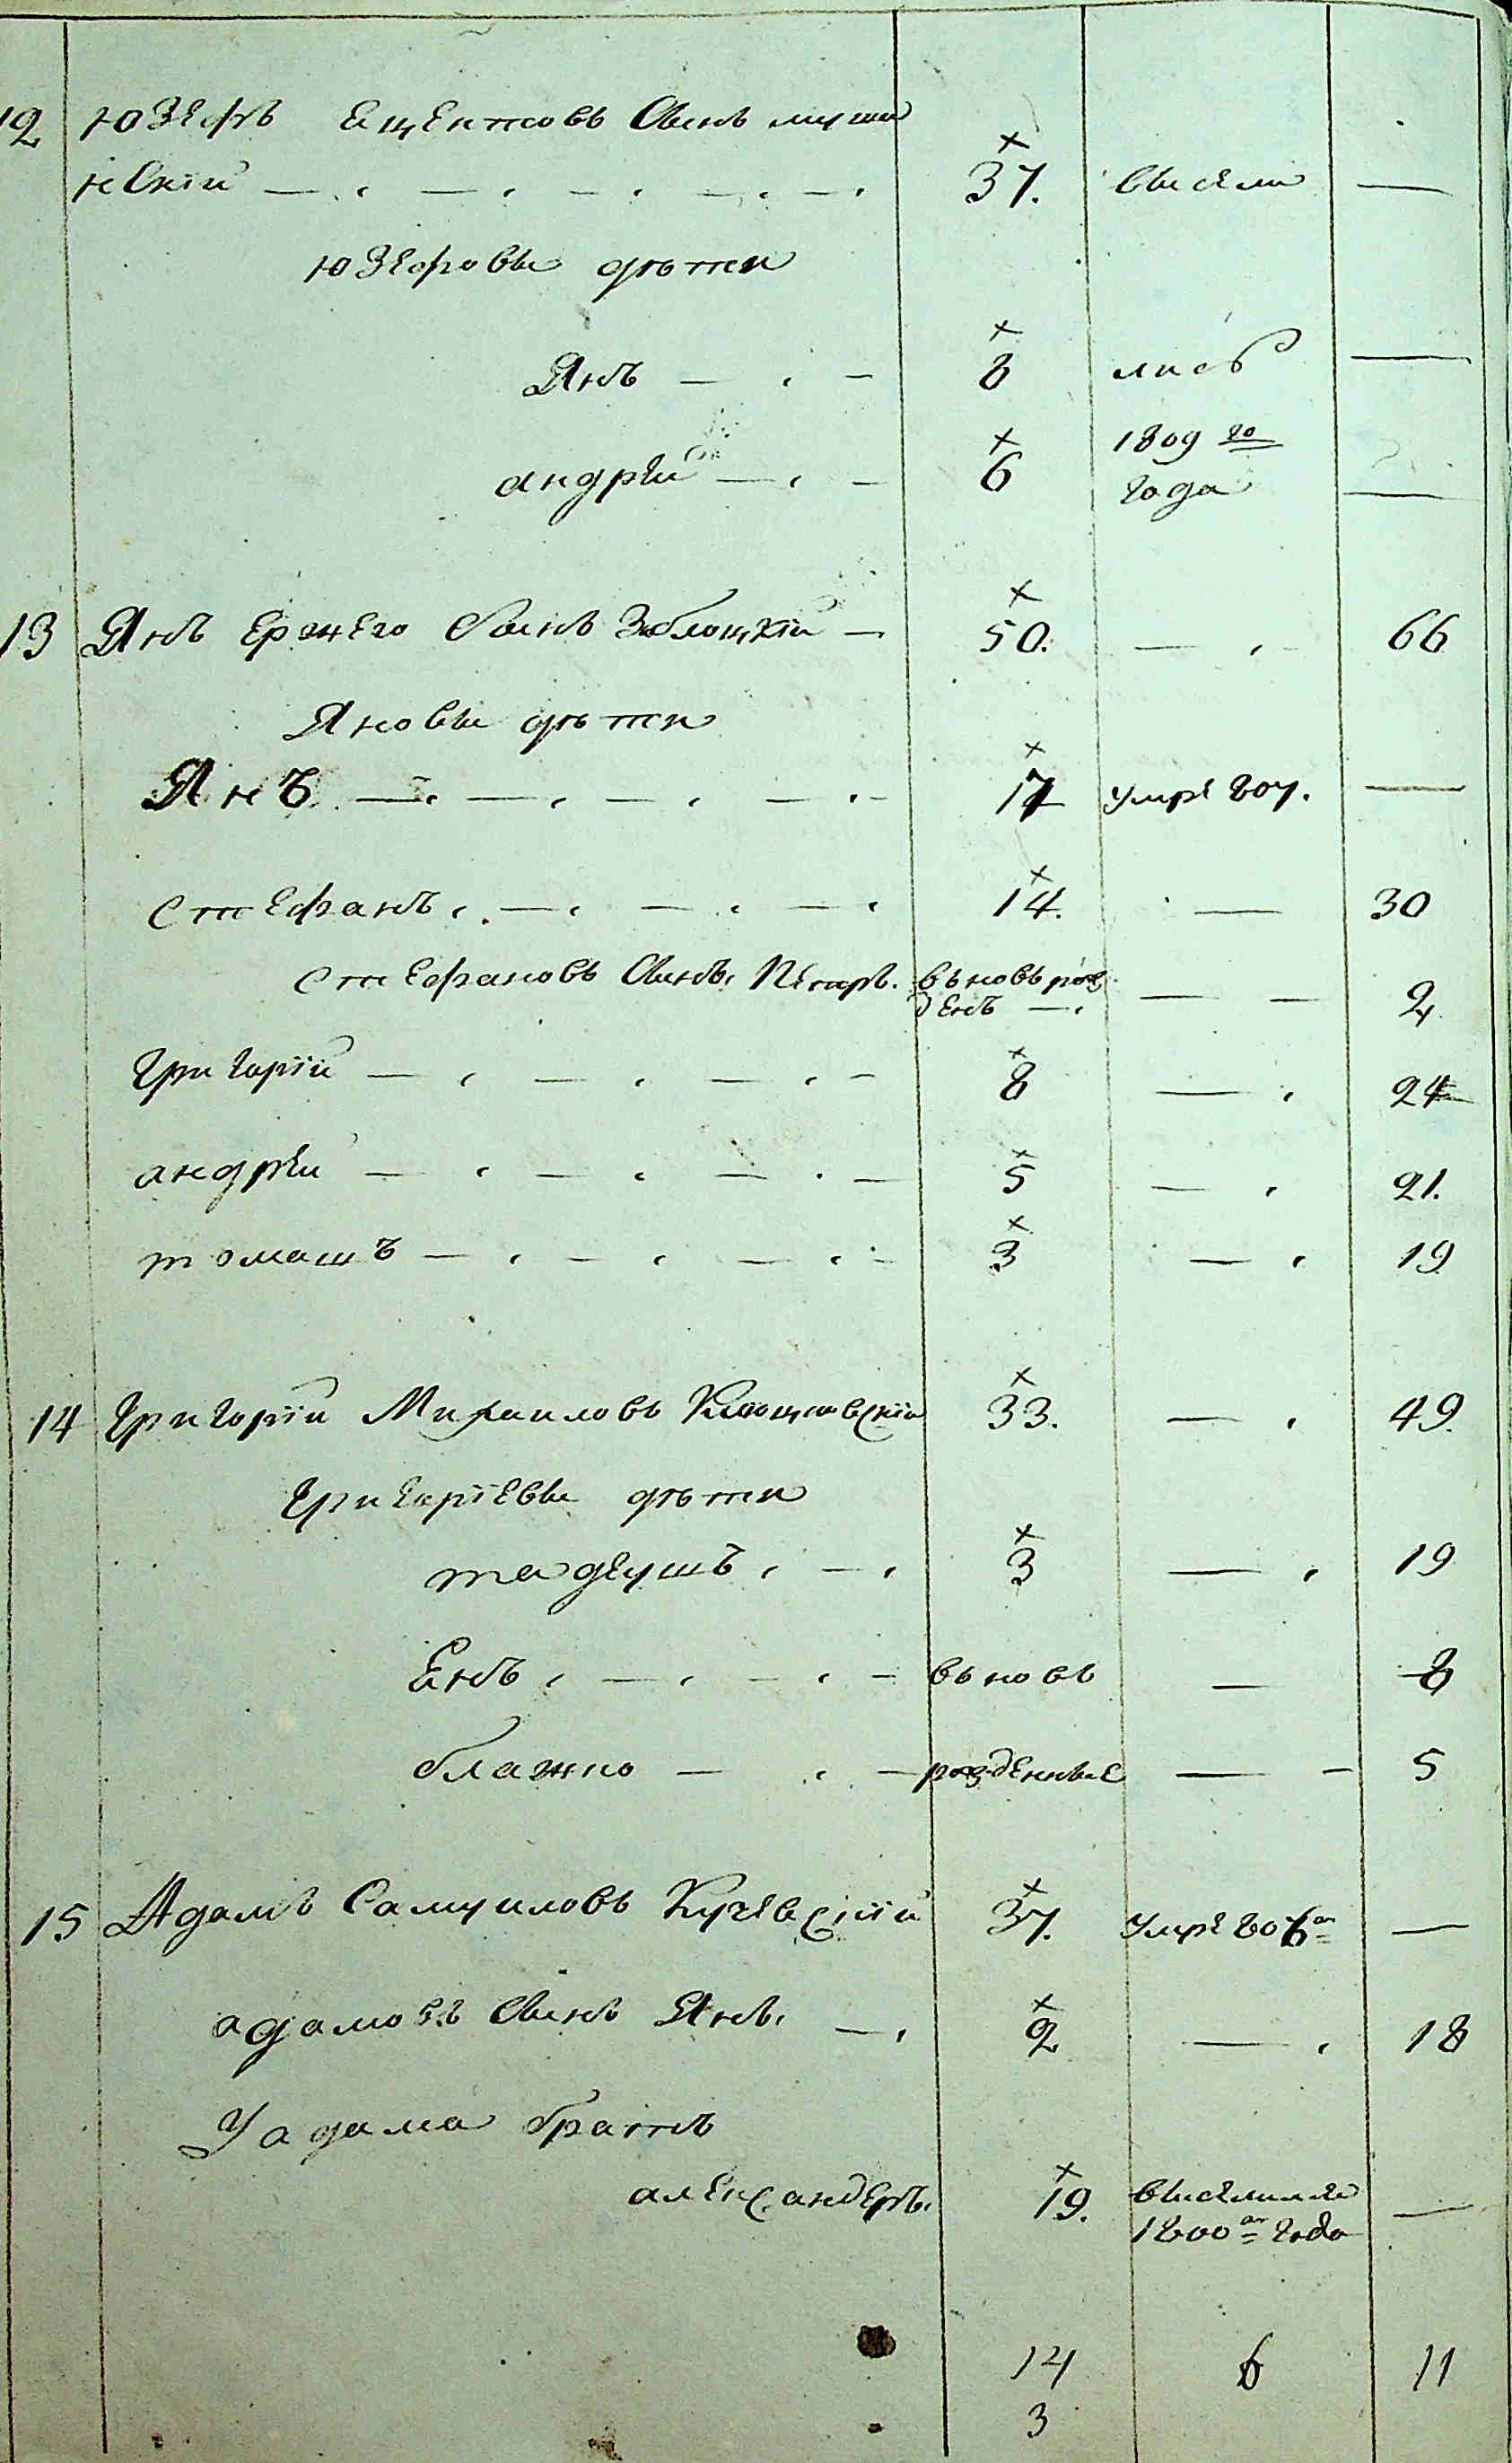 12 Юзефъ Ецентовъ Сынъ
нскiй — 37. высели —
Юзефовы дѣти
Янъ — 8 лись —
андрѣй — 6 1809 го
года —
13 Янъ Ержего Сынъ Зблоцкiй — 50. — 66
Яновы дѣти
Янъ — 17 умре 807. —
Стефанъ — 14. — 30
Стефановъ Сынъ Петръ. вьновь рож
денъ — — 2
Григорiй — 8 — 24
андрѣй — 5 — 21.
томашъ — 3 — 19
14 Григорiй Михаиловъ 33. — 49.
Григорiевы дѣти
тадеушъ — 3 — 19
Енъ — вьновь — 8
блажко — рожденные — 5
15 Адамъ Самуиловъ Кучевскiй 37. умре 806 —
адамовъ Сынъ Янъ — 2 — 18
У адама братъ
александеръ. 19. выселился —
1800 года
14 6 11
3